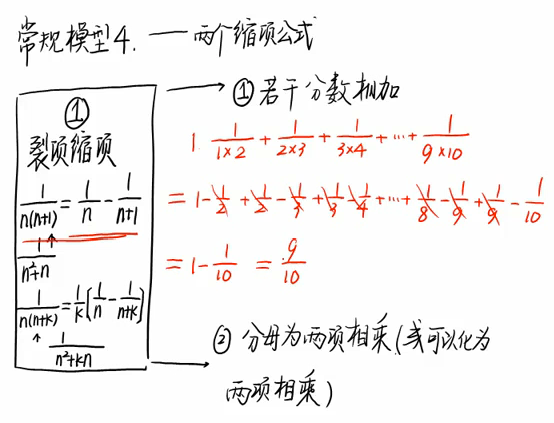 常规模型4. — 两个缩项公式
①
裂项缩项
1/n(n+1) = 1/n - 1/n+1
1/n²+n
1/n(n+k) = 1/k[1/n - 1/n+k]
1/n²+kn
①若干分数相加
1. 1/1×2 + 1/2×3 + 1/3×4 + ... + 1/9×10
= 1 - 1/2 + 1/2 - 1/3 + 1/3 - 1/4 + ... + 1/8 - 1/9 + 1/9 - 1/10
= 1 - 1/10 = 9/10
② 分母为两项相乘(或可以化为
两项相乘)